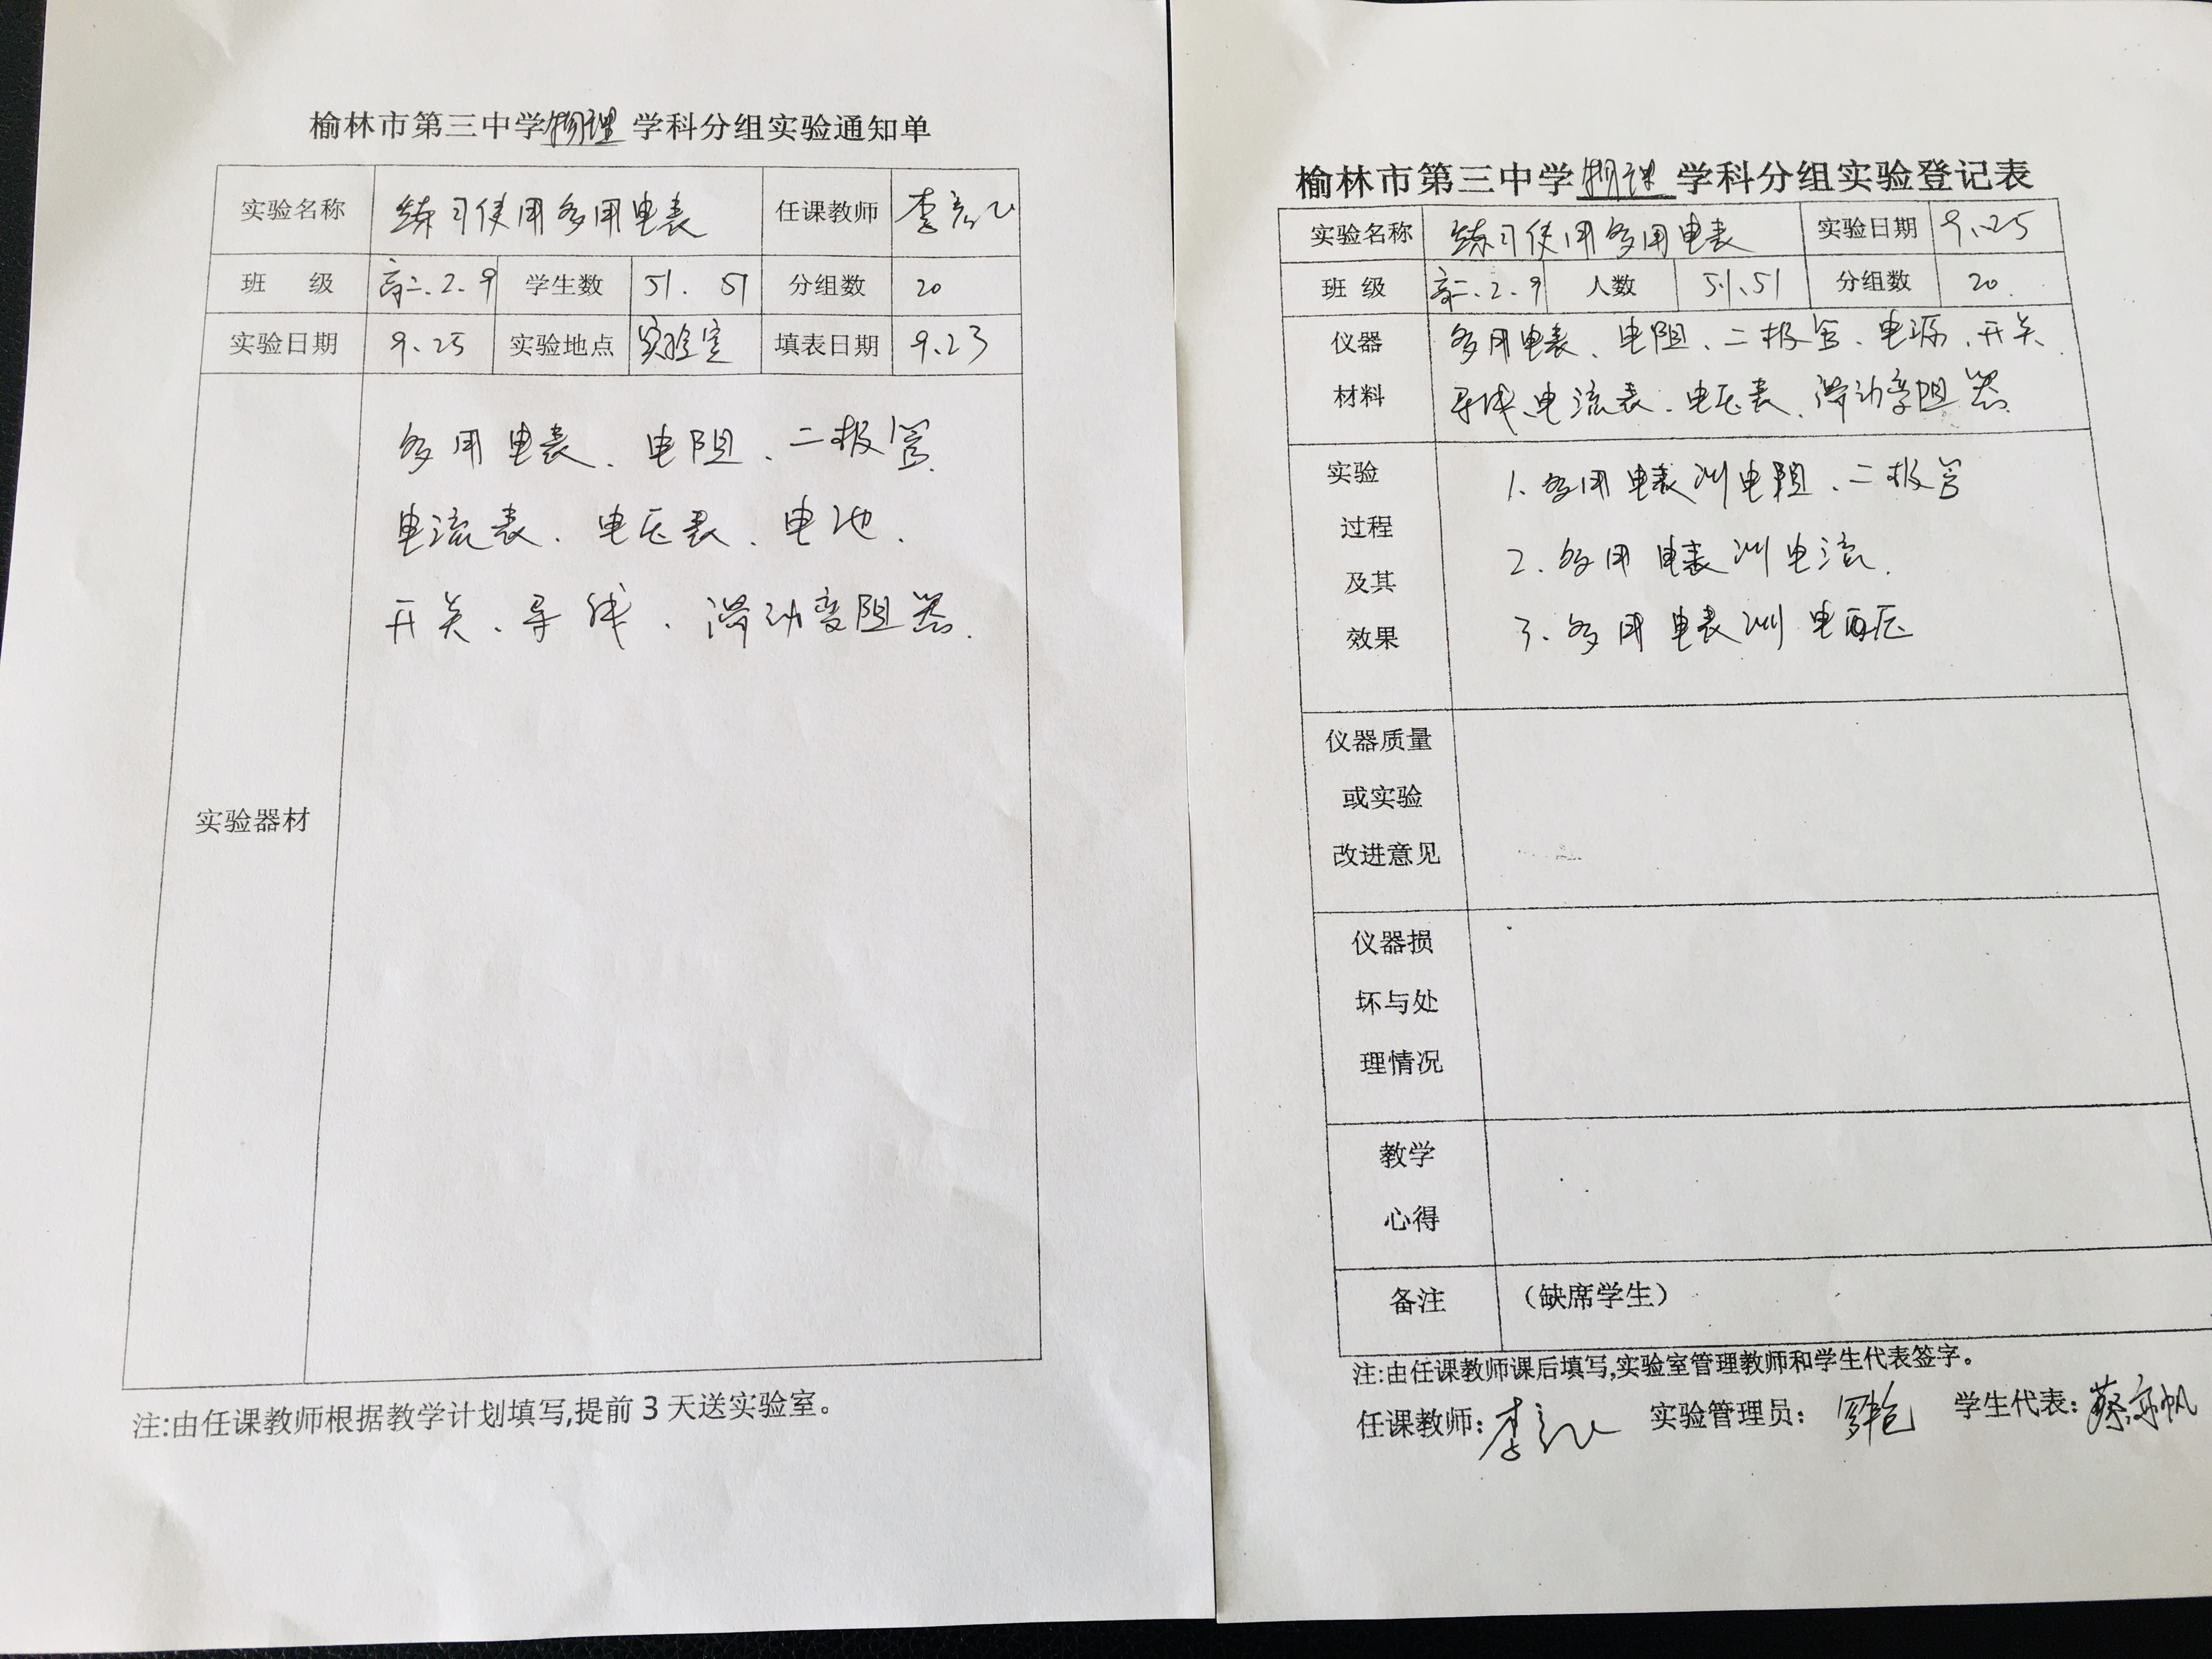 榆林市第三中学物理学科分组实验通知单
实验名称 练习使用多用电表 任课教师 李
班 级 高二.2.9 学生数 51. 51 分组数 20
实验日期 9.25 实验地点 实验室 填表日期 9.23
实验器材
多用电表、电阻、二极管.
电流表、电压表、电池.
开关、导线、滑动变阻器.
注:由任课教师根据教学计划填写,提前3天送实验室。
榆林市第三中学物理学科分组实验登记表
实验名称 练习使用多用电表 实验日期 9.25
班 级 高二.2.9 人数 51、51 分组数 20.
仪器 多用电表、电阻、二极管、电源、开关.
材料 导线、电流表、电压表、滑动变阻器.
实验 1.多用电表测电阻、二极管
过程 2.多用电表测电流.
及其
效果 3.多用电表测电压
仪器质量
或实验
改进意见
仪器损
坏与处
理情况
教学
心得
备注 (缺席学生)
注:由任课教师课后填写,实验室管理教师和学生代表签字。
任课教师: 李 实验管理员: 学生代表: 蔡